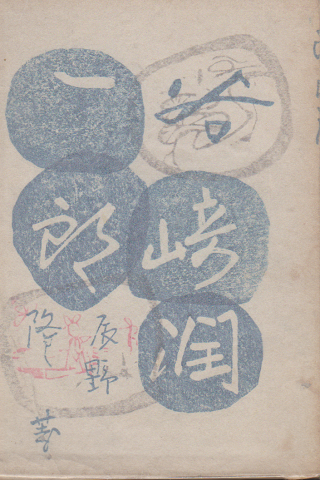 谷崎潤
一郎
辰野
隆
著